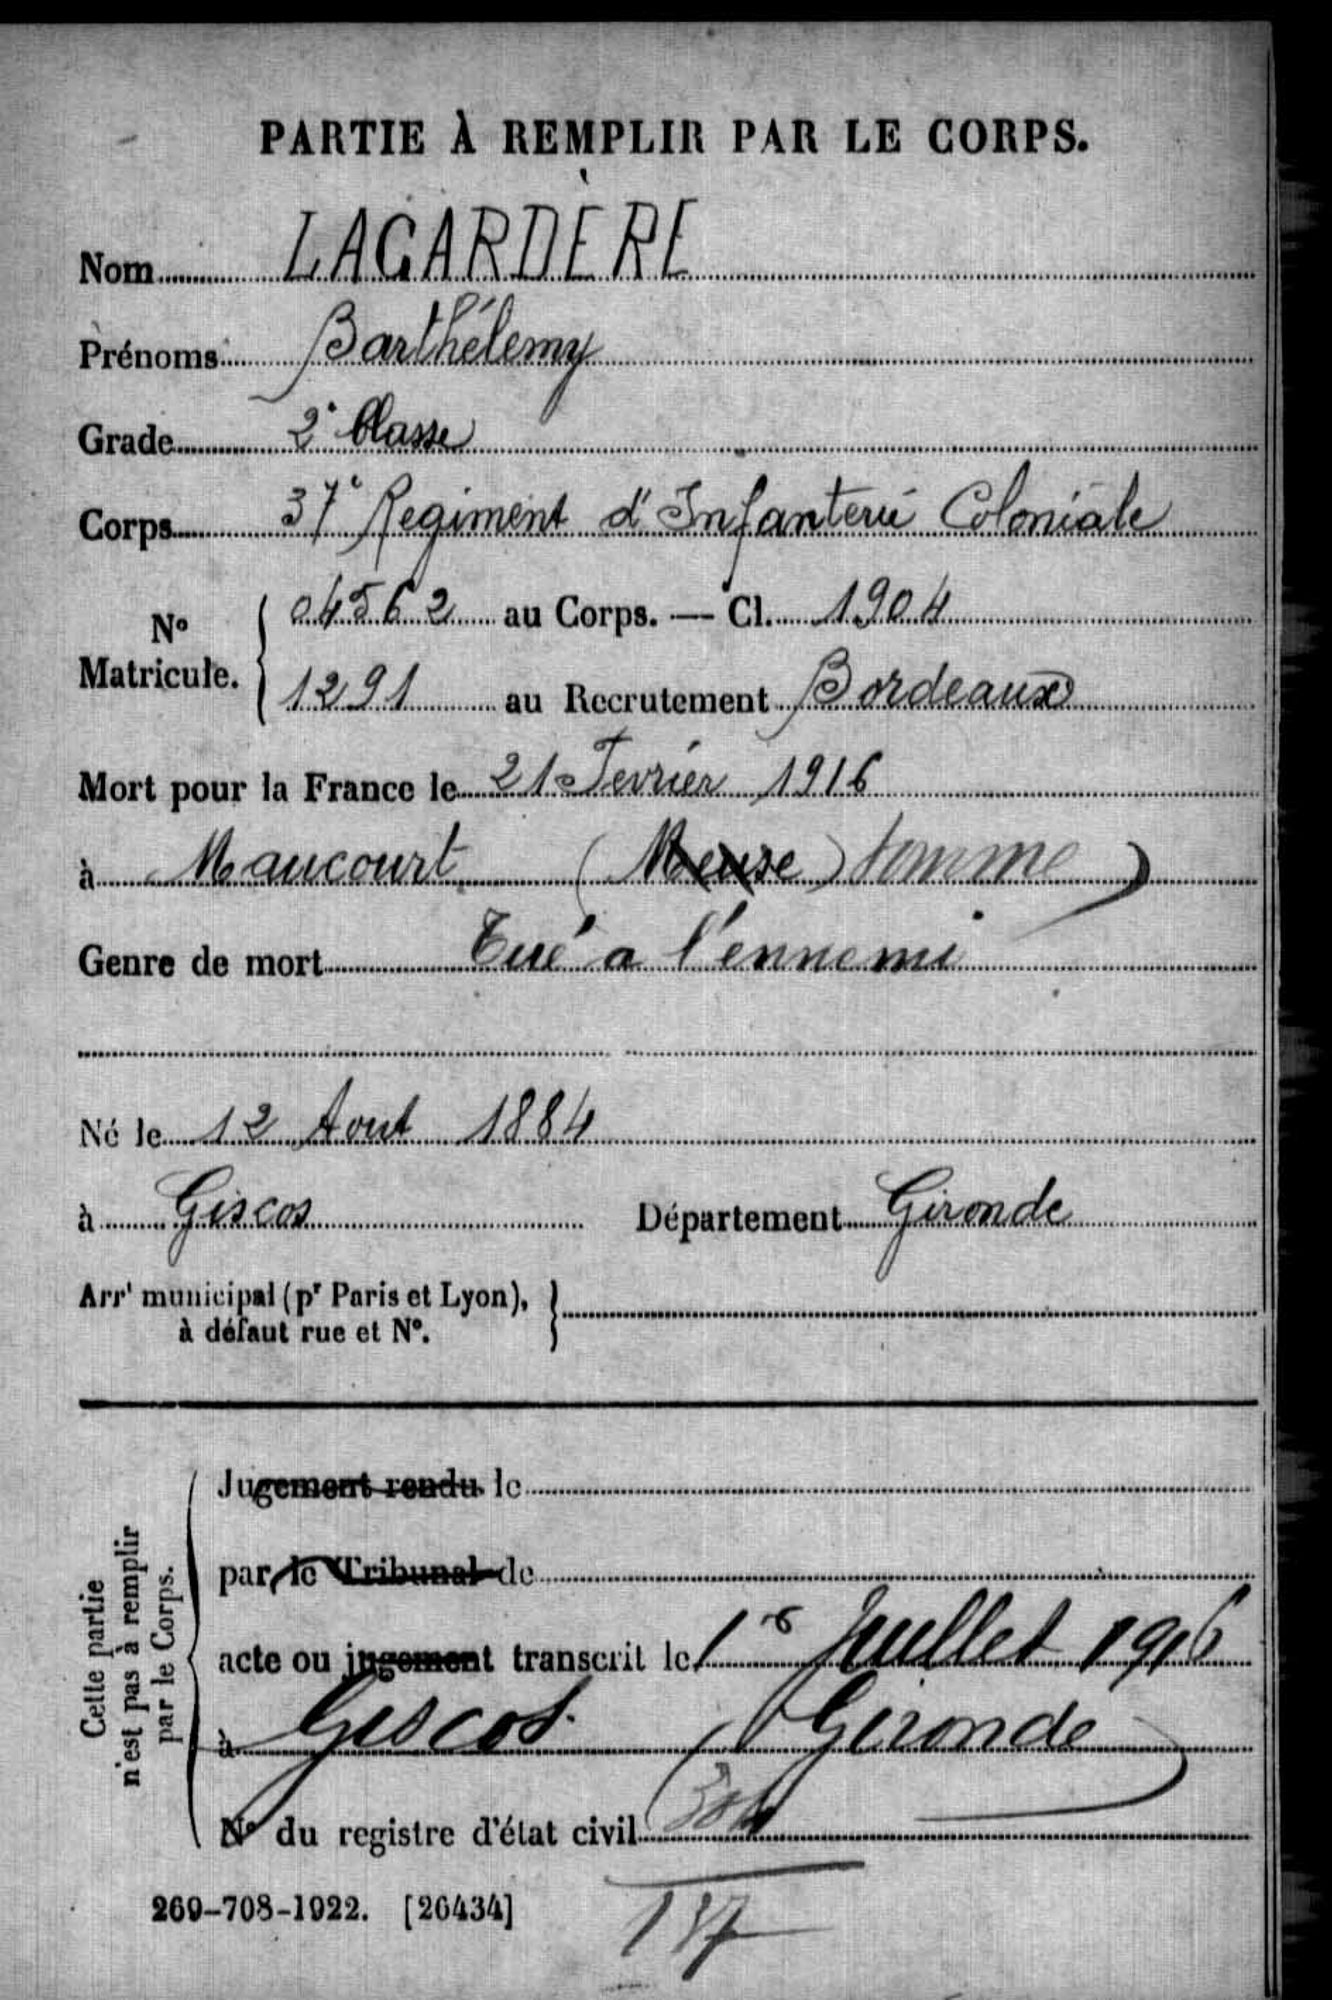 PARTIE À REMPLIR PAR LE CORPS.
Nom LAGARDÈRE
Prénoms Barthélemy
Grade 2e Classe
Corps 37e Regiment d'Infanterie Coloniale
No Matricule. { 04562 au Corps. — Cl. 1904
1291 au Recrutement Bordeaux
Mort pour la France le 21 Fevrier 1916
à Maucourt (Meuse) Somme)
Genre de mort Tué a l'ennemi
Né le 12 Aout 1884
à Giscos Département Gironde
Arrt municipal (pr Paris et Lyon), à défaut rue et No. }
Cette partie n'est pas à remplir par le Corps.
Jugement rendu le
par le Tribunal de
acte ou jugement transcrit le 1er Juillet 1916
à Giscos (Gironde)
No du registre d'état civil
269-708-1922. [26434]